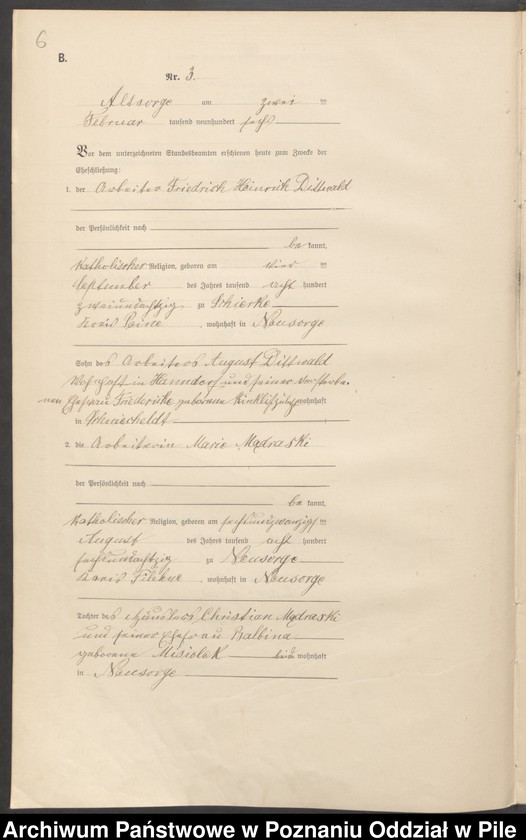 6
B.
Nr. 3.
Altsorge am zwei ten
Februar tausend neunhundert sechs
Vor dem unterzeichneten Standesbeamten erschienen heute zum Zwecke der
Eheschließung:
1. der Arbeiter Friedrich Heinrich Dittwald
der Persönlichkeit nach
be kannt,
katholischer Religion, geboren am vier ten
September des Jahres tausend acht hundert
zweiundachtzig zu Schierke
Kreis, wohnhaft in Neusorge
Sohn des Arbeiters August Dittwald
wohnhaft in und seiner verstorbe-
nen Ehefrau Friederike geborene wohnhaft
in
2. die Arbeiterin Marie Mądraski
der Persönlichkeit nach
be kannt,
katholischer Religion, geboren am sechsundzwanzigs ten
August des Jahres tausend acht hundert
sechsundachtzig zu Neusorge
Kreis Filehne, wohnhaft in Neusorge
Tochter des Häuslers Christian Mądraski
und seiner Ehefrau Balbina
geborene Misiolek beide wohnhaft
in Neusorge
Archiwum Państwowe w Poznaniu Oddział w Pile